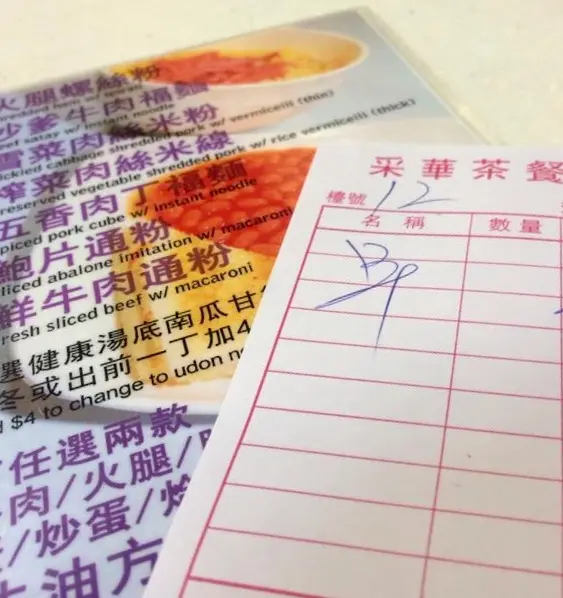 火腿螺絲粉
shredded ham w/ spiral
沙爹牛肉福麵
beef satay w/ instant noodle
雪菜肉絲米粉
pickled cabbage shredded pork w/ vermicelli (thin)
榨菜肉絲米線
preserved vegetable shredded pork w/ rice vermicelli (thick)
五香肉丁福麵
spiced pork cube w/ instant noodle
鮑片通粉
sliced abalone imitation w/ macaroni
鮮牛肉通粉
fresh sliced beef w/ macaroni
選健康湯底南瓜甘
冬或出前一丁加4
$4 to change to udon
任選兩款
肉/火腿/
/炒蛋/
油方
采華茶餐
檯號 12
名稱 數量